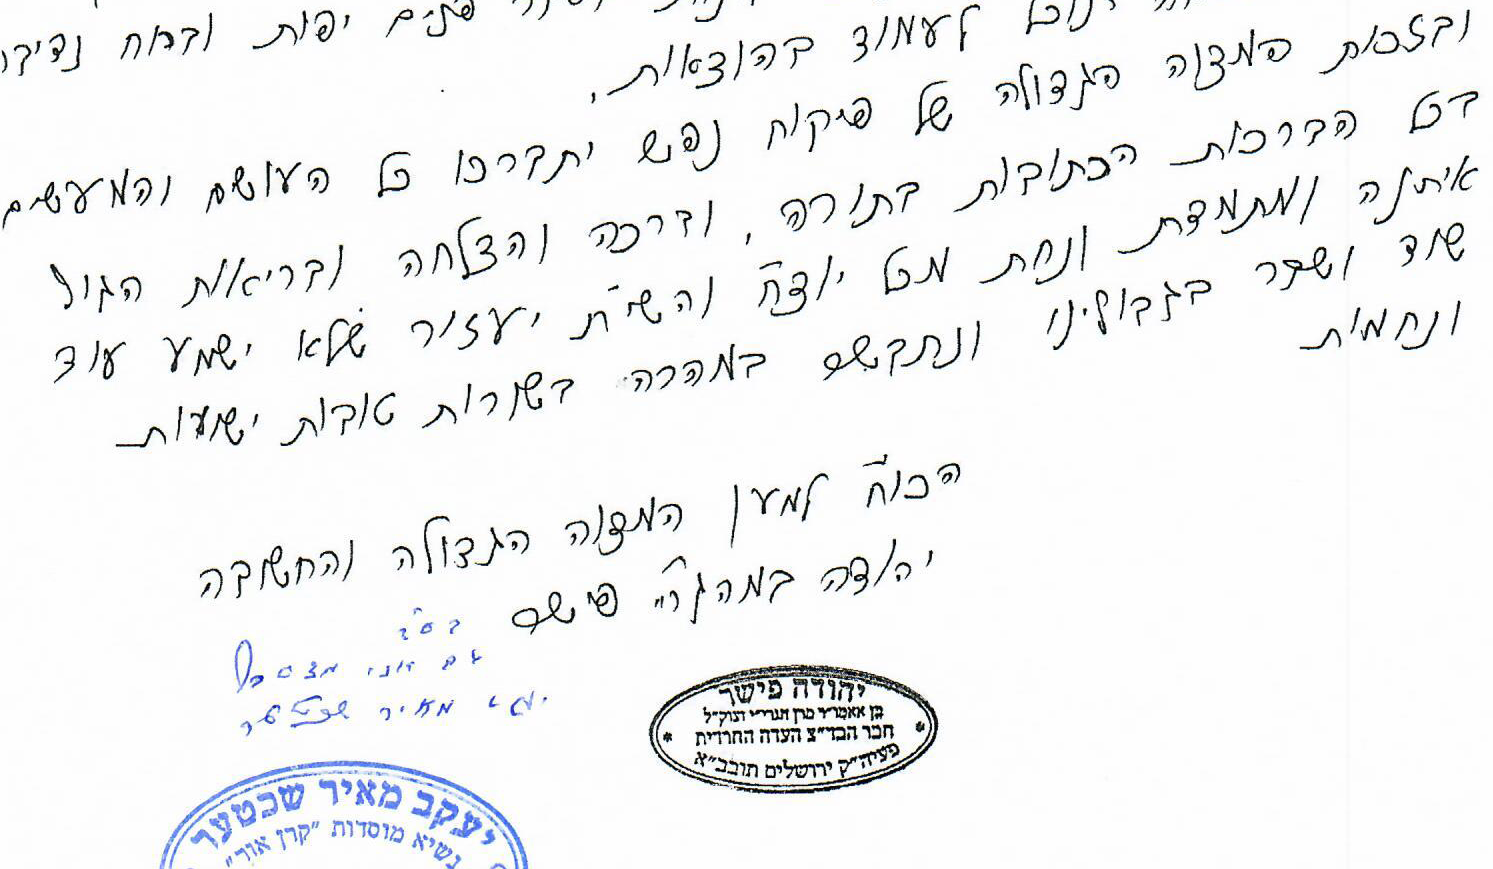 פנים יפות וברוח נדיבה
נוכל לעמוד בהוצאות,
ובזכות המצוה הגדולה של פיקוח נפש יתברכו כל העושים והמעשים
בכל הברכות הכתובות בתורה, וברכה והצלחה ובריאות הגוף
איתנה ומתמדת ונחת מכל יוצ"ח והשי"ת יעזור שלא ישמע עוד
שוד ושבר בגבולינו ונתבשר במהרה בשורות טובות ישועות
ונחמות
הכו"ח למען המצוה הגדולה והחשובה
יהודה במהגר"י פישר
בס"ד
גם אני מצטרף
יעקב מאיר שכטער
יהודה פישר
חבר הבד"צ העדה החרדית
פעיה"ק ירושלים תובב"א
יעקב מאיר שכטער
נשיא מוסדות "קרן אור"